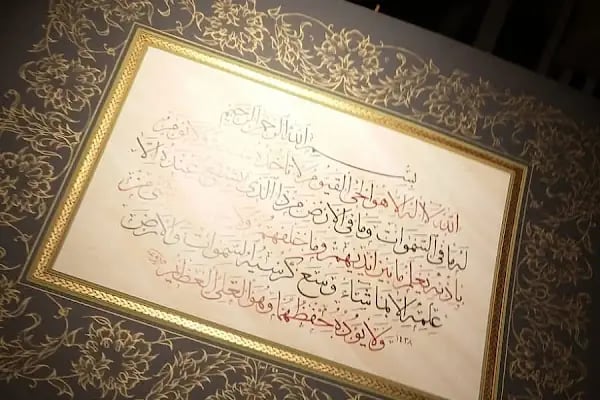 بسم الله الرحمن الرحيم
الله لا اله الا هو الحي القيوم لا تأخذه سنة ولا نوم
له ما في السموات وما في الارض من ذا الذي يشفع عنده الا
باذنه يعلم ما بين ايديهم وما خلفهم ولا
علمه الا بما شاء وسع كرسيه السموات والارض
ولا يؤده حفظهما وهو العلي العظيم
١٤٣٨